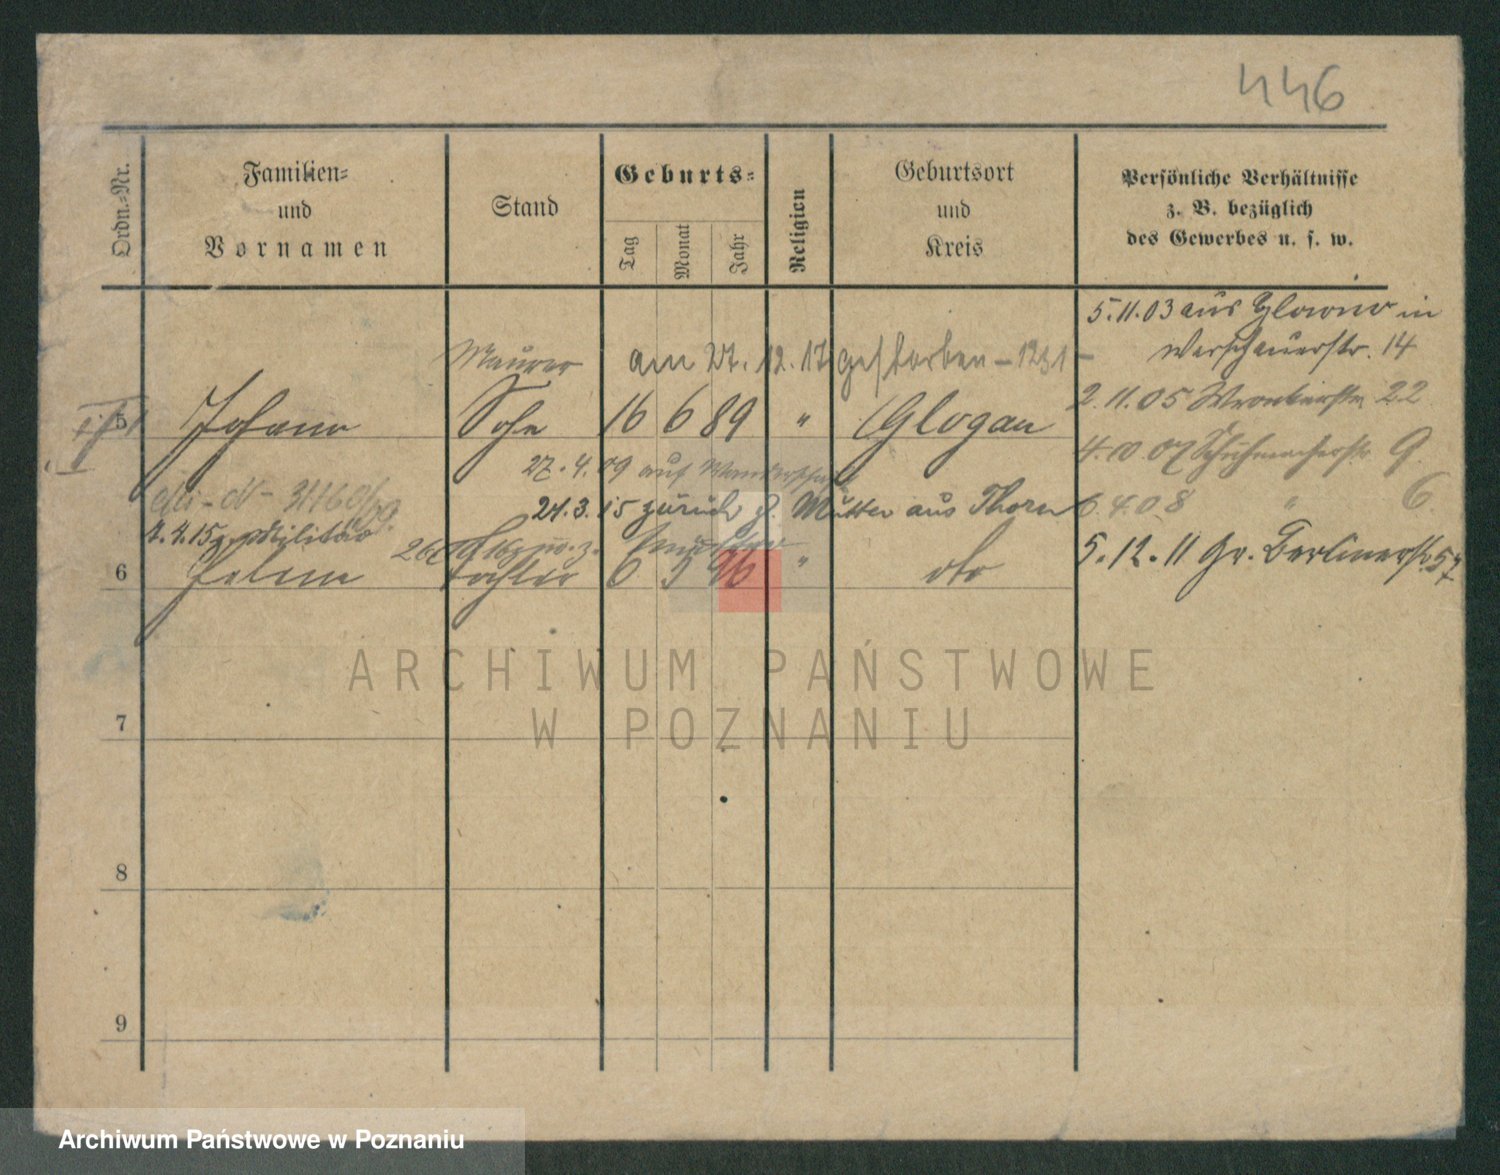 446
Ordn.-Nr.
Familien-
und
Vornamen
Stand
Geburts-
Tag
Monat
Jahr
Religion
Geburtsort
und
Kreis
Persönliche Verhältnisse
z. B. bezüglich
des Gewerbes u. s. w.
5.11.03 aus Glowno in
Warschauerstr. 14
Maurer am 27.12.17 gestorben
2.11.05 Wronkerstr. 22
5 Johann Sohn 16 6 89 " Glogau
4.10.07 Schuhmacherstr. 9
27.4.09 auf Wanderschaft
21.3.15 zurück z. Mutter aus Thorn
6.4.08 " 6.
4.4.15 z. Militär
5.12.11 Gr. Berlinerstr. 57
6 Tochter 6 5 96 " dto
7
8
9
ARCHIWUM PAŃSTWOWE
W POZNANIU
Archiwum Państwowe w Poznaniu